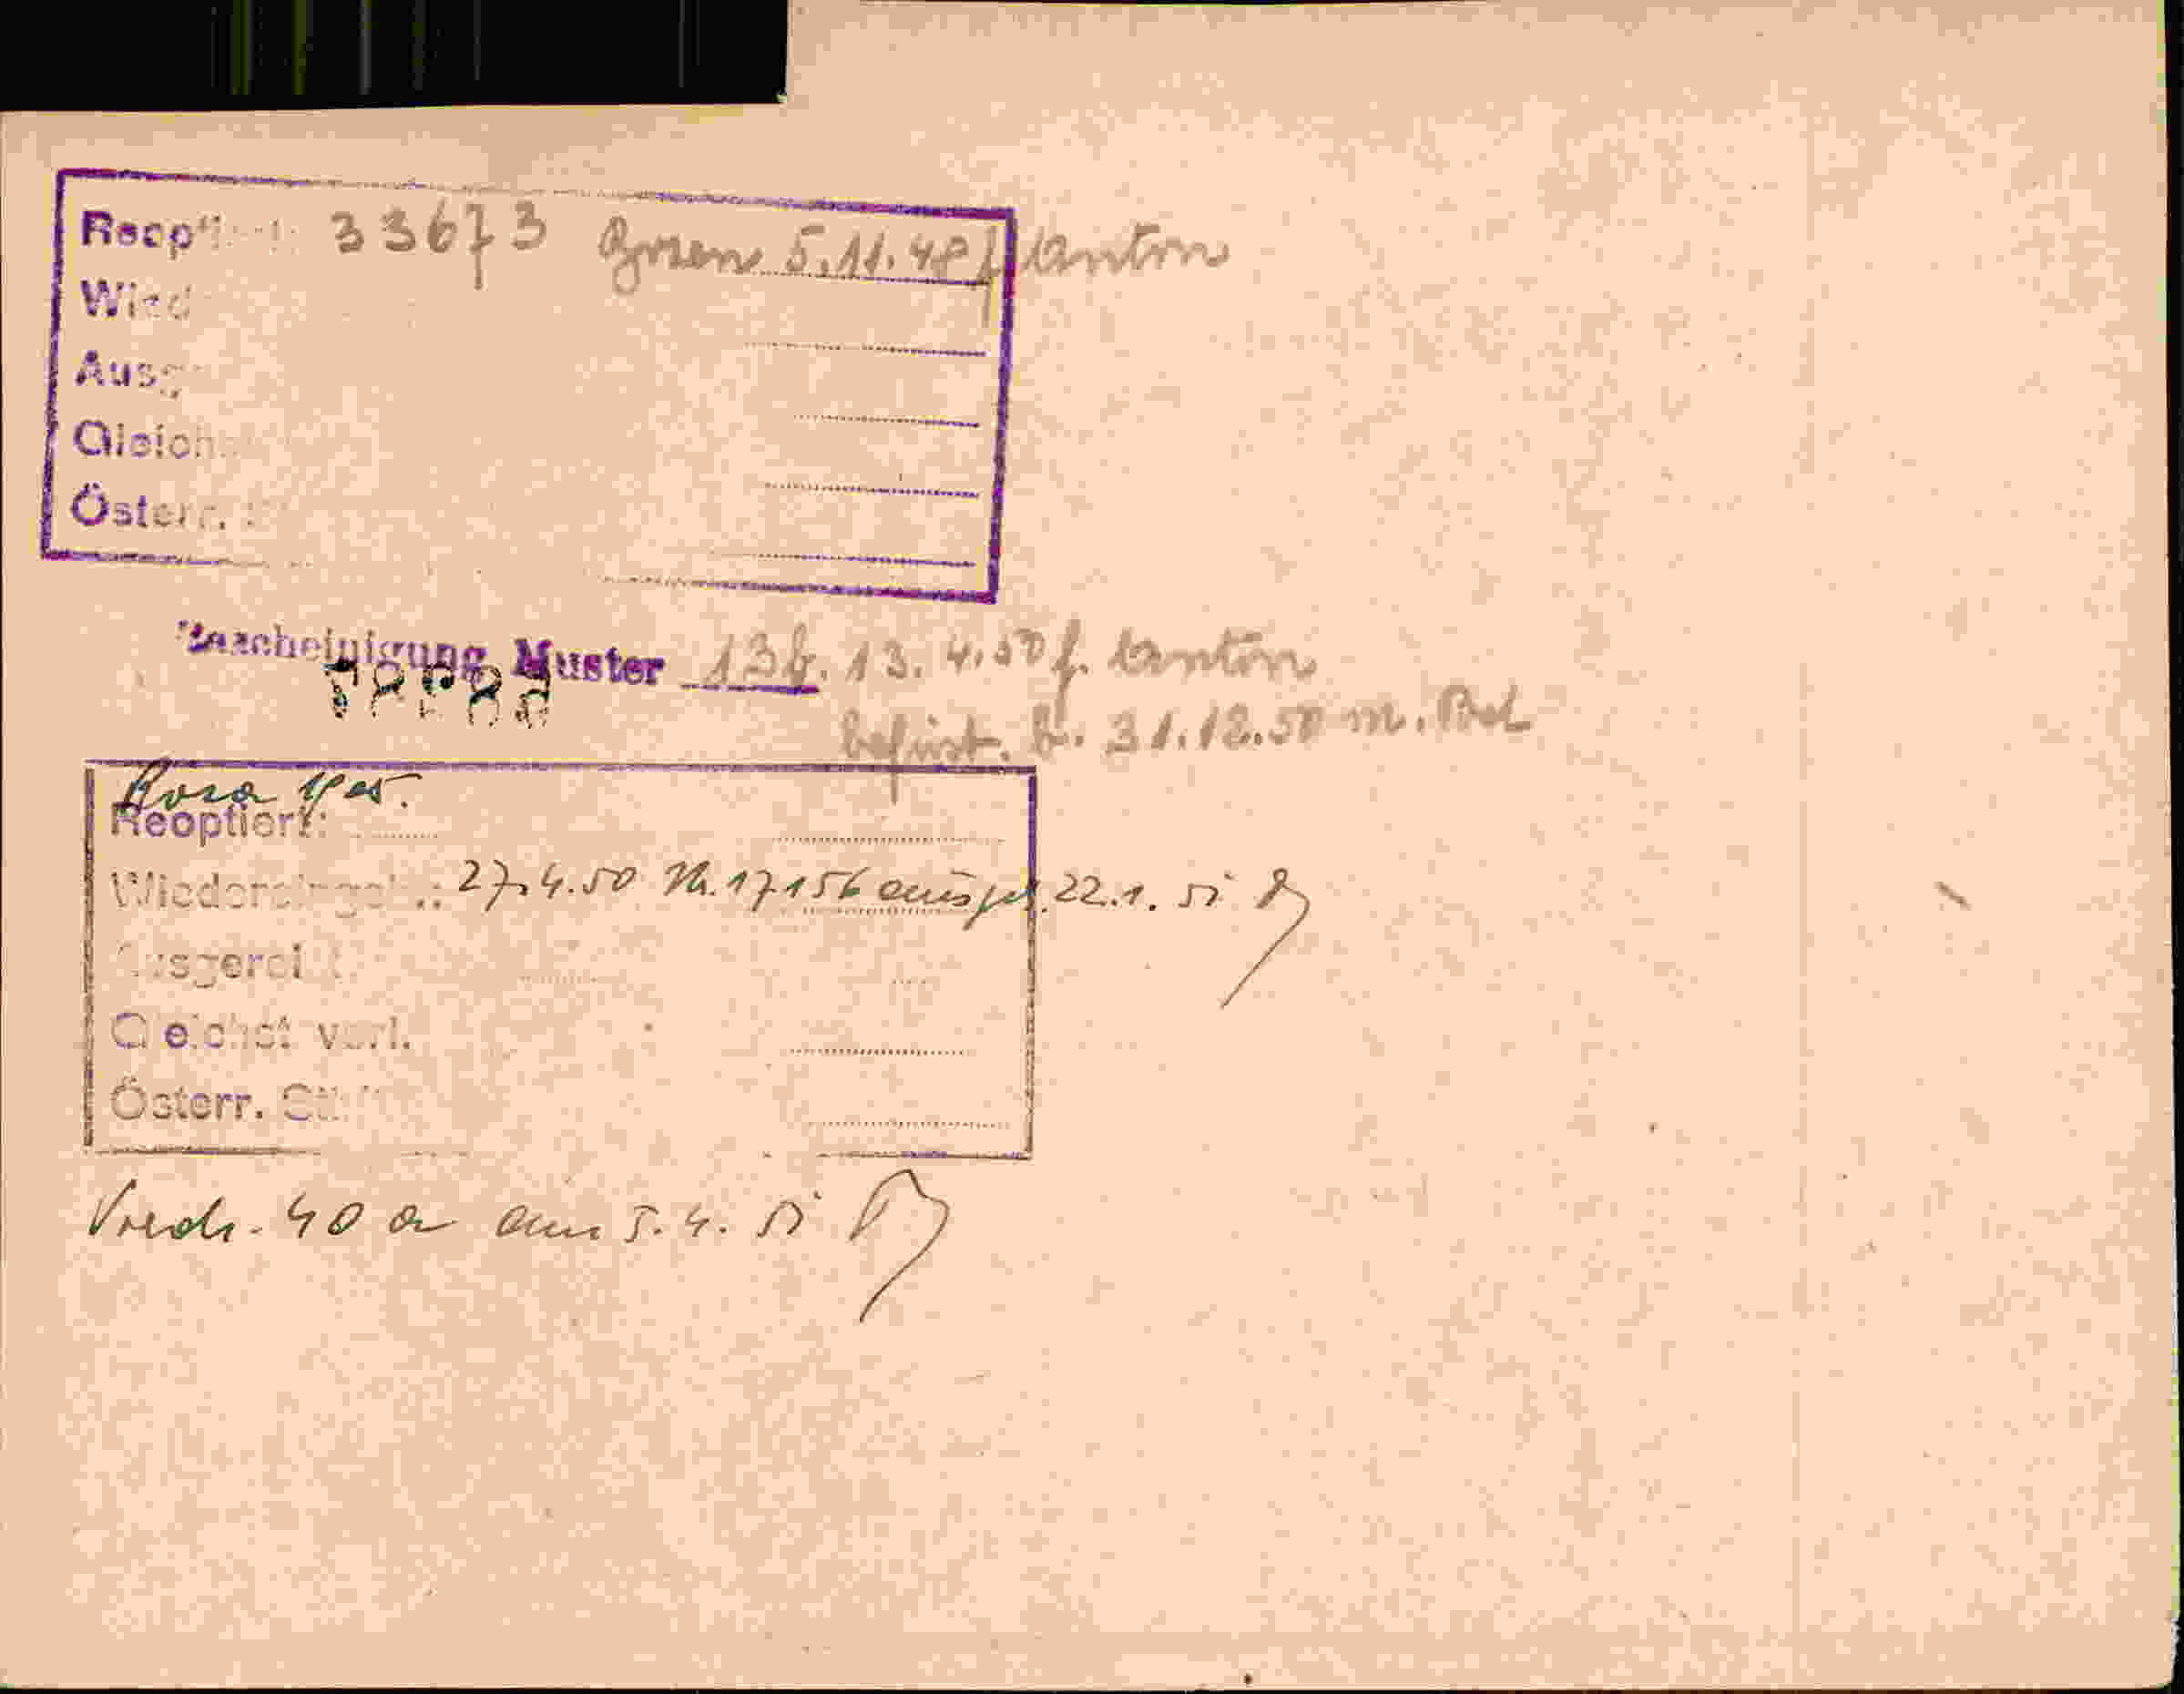 Reopt 33673 Bozen 5.11.48 f. Anton
Wied
Ausg
Gleich
Österr.
Bescheinigung Muster 13b. 13.4.50 f. Anton
befrist. b. 31.12.50 m.
Rosa
Reoptiert:
Wiedereingeb.: 27.4.50 17156 22.1.51
Ausgereist
Gleichst verl.
Österr. St
40 a am 5.4.51